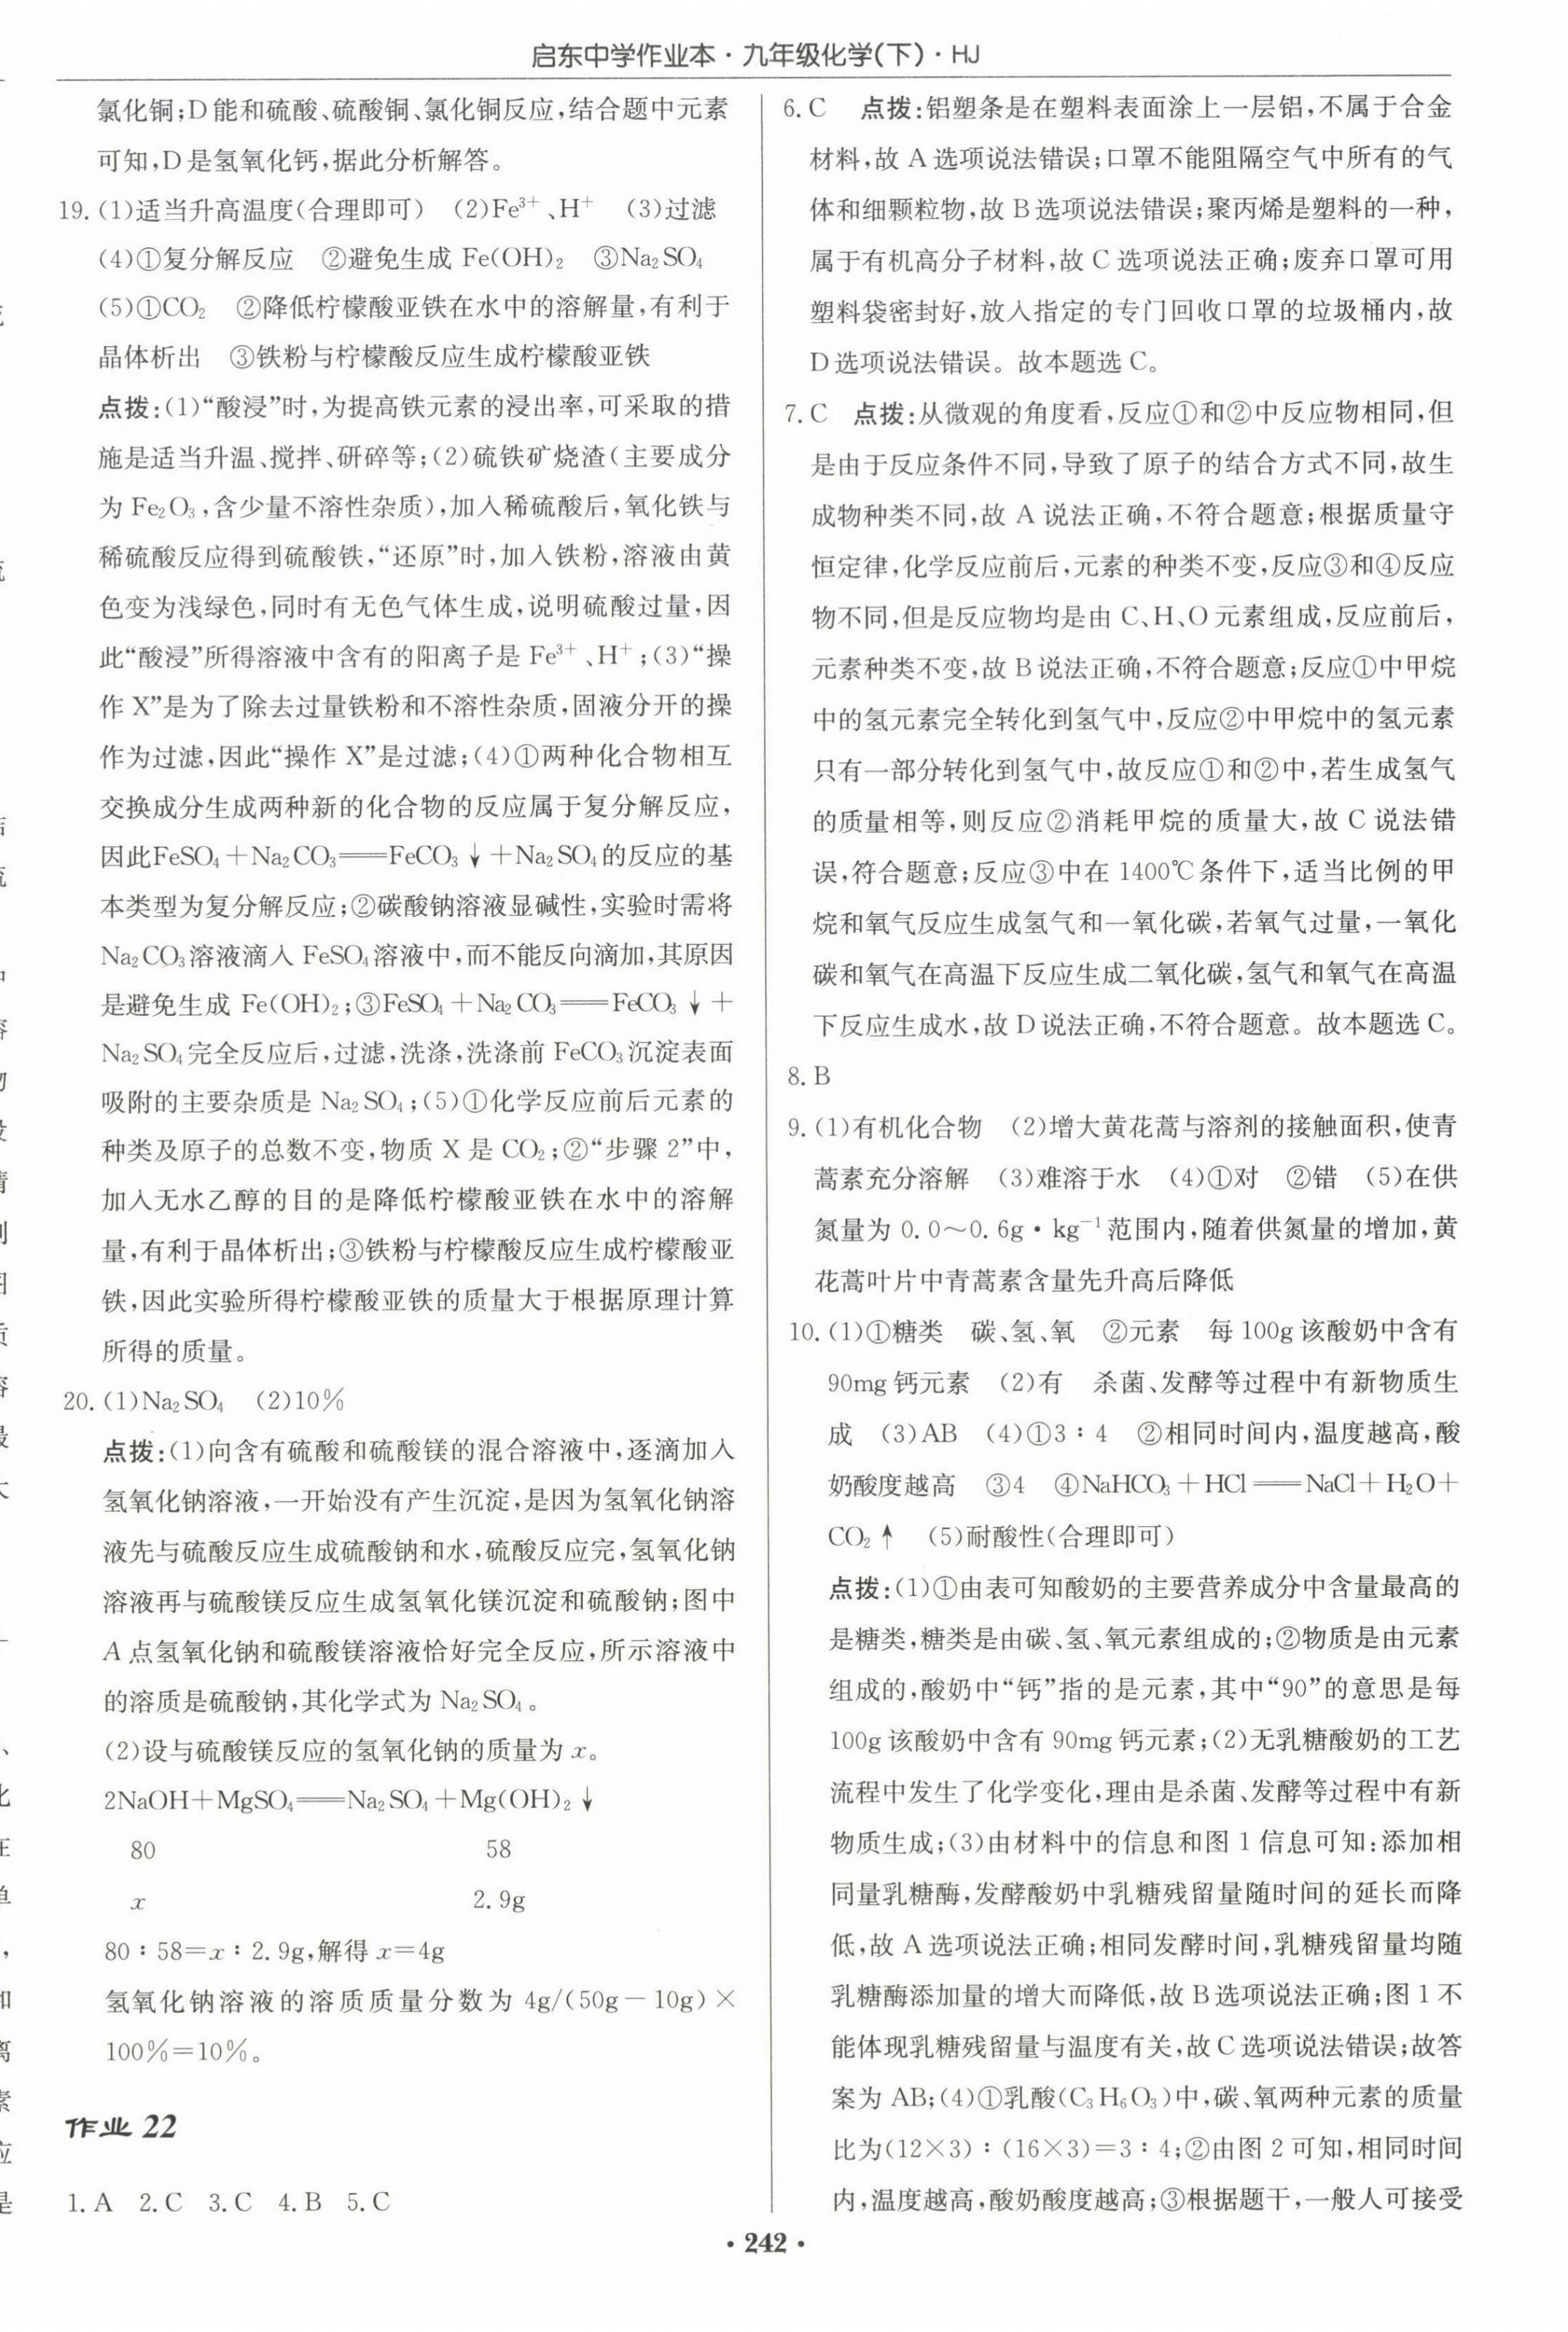 启东中学作业本·九年级化学(下)·HJ
氯化铜;D能和硫酸、硫酸铜、氯化铜反应,结合题中元素
可知,D是氢氧化钙,据此分析解答。
19.(1)适当升高温度(合理即可) (2)Fe³⁺、H⁺ (3)过滤
(4)①复分解反应 ②避免生成 Fe(OH)₂ ③Na₂SO₄
(5)①CO₂ ②降低柠檬酸亚铁在水中的溶解量,有利于
晶体析出 ③铁粉与柠檬酸反应生成柠檬酸亚铁
点拨:(1)“酸浸”时,为提高铁元素的浸出率,可采取的措
施是适当升温、搅拌、研碎等;(2)硫铁矿烧渣(主要成分
为 Fe₂O₃,含少量不溶性杂质),加入稀硫酸后,氧化铁与
稀硫酸反应得到硫酸铁,“还原”时,加入铁粉,溶液由黄
色变为浅绿色,同时有无色气体生成,说明硫酸过量,因
此“酸浸”所得溶液中含有的阳离子是 Fe³⁺、H⁺;(3)“操
作 X”是为了除去过量铁粉和不溶性杂质,固液分开的操
作为过滤,因此“操作 X”是过滤;(4)①两种化合物相互
交换成分生成两种新的化合物的反应属于复分解反应,
因此FeSO₄+Na₂CO₃══FeCO₃↓+Na₂SO₄的反应的基
本类型为复分解反应;②碳酸钠溶液显碱性,实验时需将
Na₂CO₃溶液滴入 FeSO₄溶液中,而不能反向滴加,其原因
是避免生成 Fe(OH)₂;③FeSO₄+Na₂CO₃══FeCO₃↓+
Na₂SO₄完全反应后,过滤,洗涤,洗涤前 FeCO₃沉淀表面
吸附的主要杂质是 Na₂SO₄;(5)①化学反应前后元素的
种类及原子的总数不变,物质 X 是 CO₂;②“步骤 2”中,
加入无水乙醇的目的是降低柠檬酸亚铁在水中的溶解
量,有利于晶体析出;③铁粉与柠檬酸反应生成柠檬酸亚
铁,因此实验所得柠檬酸亚铁的质量大于根据原理计算
所得的质量。
20.(1)Na₂SO₄ (2)10%
点拨:(1)向含有硫酸和硫酸镁的混合溶液中,逐滴加入
氢氧化钠溶液,一开始没有产生沉淀,是因为氢氧化钠溶
液先与硫酸反应生成硫酸钠和水,硫酸反应完,氢氧化钠
溶液再与硫酸镁反应生成氢氧化镁沉淀和硫酸钠;图中
A 点氢氧化钠和硫酸镁溶液恰好完全反应,所示溶液中
的溶质是硫酸钠,其化学式为 Na₂SO₄。
(2)设与硫酸镁反应的氢氧化钠的质量为 x。
2NaOH+MgSO₄══Na₂SO₄+Mg(OH)₂↓
80 58
x 2.9g
80∶58=x∶2.9g,解得 x=4g
氢氧化钠溶液的溶质质量分数为 4g/(50g-10g)×
100%=10%。
作业 22
1.A 2.C 3.C 4.B 5.C
6.C 点拨:铝塑条是在塑料表面涂上一层铝,不属于合金
材料,故 A 选项说法错误;口罩不能阻隔空气中所有的气
体和细颗粒物,故 B 选项说法错误;聚丙烯是塑料的一种,
属于有机高分子材料,故 C 选项说法正确;废弃口罩可用
塑料袋密封好,放入指定的专门回收口罩的垃圾桶内,故
D 选项说法错误。故本题选 C。
7.C 点拨:从微观的角度看,反应①和②中反应物相同,但
是由于反应条件不同,导致了原子的结合方式不同,故生
成物种类不同,故 A 说法正确,不符合题意;根据质量守
恒定律,化学反应前后,元素的种类不变,反应③和④反应
物不同,但是反应物均是由 C、H、O 元素组成,反应前后,
元素种类不变,故 B 说法正确,不符合题意;反应①中甲烷
中的氢元素完全转化到氢气中,反应②中甲烷中的氢元素
只有一部分转化到氢气中,故反应①和②中,若生成氢气
的质量相等,则反应②消耗甲烷的质量大,故 C 说法错
误,符合题意;反应③中在 1400℃条件下,适当比例的甲
烷和氧气反应生成氢气和一氧化碳,若氧气过量,一氧化
碳和氧气在高温下反应生成二氧化碳,氢气和氧气在高温
下反应生成水,故 D 说法正确,不符合题意。故本题选 C。
8.B
9.(1)有机化合物 (2)增大黄花蒿与溶剂的接触面积,使青
蒿素充分溶解 (3)难溶于水 (4)①对 ②错 (5)在供
氮量为 0.0~0.6g·kg⁻¹范围内,随着供氮量的增加,黄
花蒿叶片中青蒿素含量先升高后降低
10.(1)①糖类 碳、氢、氧 ②元素 每 100g 该酸奶中含有
90mg 钙元素 (2)有 杀菌、发酵等过程中有新物质生
成 (3)AB (4)①3∶4 ②相同时间内,温度越高,酸
奶酸度越高 ③4 ④NaHCO₃+HCl══NaCl+H₂O+
CO₂↑ (5)耐酸性(合理即可)
点拨:(1)①由表可知酸奶的主要营养成分中含量最高的
是糖类,糖类是由碳、氢、氧元素组成的;②物质是由元素
组成的,酸奶中“钙”指的是元素,其中“90”的意思是每
100g 该酸奶中含有 90mg 钙元素;(2)无乳糖酸奶的工艺
流程中发生了化学变化,理由是杀菌、发酵等过程中有新
物质生成;(3)由材料中的信息和图 1 信息可知:添加相
同量乳糖酶,发酵酸奶中乳糖残留量随时间的延长而降
低,故 A 选项说法正确;相同发酵时间,乳糖残留量均随
乳糖酶添加量的增大而降低,故 B 选项说法正确;图 1 不
能体现乳糖残留量与温度有关,故 C 选项说法错误;故答
案为 AB;(4)①乳酸(C₃H₆O₃)中,碳、氧两种元素的质量
比为(12×3)∶(16×3)=3∶4;②由图 2 可知,相同时间
内,温度越高,酸奶酸度越高;③根据题干,一般人可接受
·242·